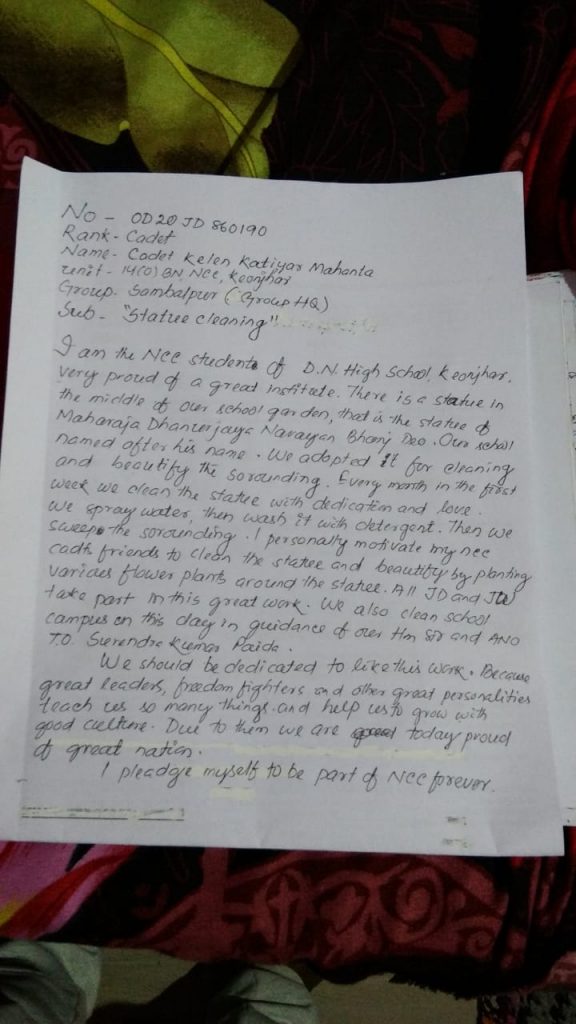 No - OD20JD860190
Rank - Cadet
Name - Cadet Kelen Katiyar Mahanta
unit - 14(O) BN NCC, Keonjhar
Group - Sambalpur (Group HQ)
Sub - "Statue cleaning"
I am the NCC student of D.N. High School, Keonjhar,
very proud of a great institute. There is a statue in
the middle of our school garden, that is the statue of
Maharaja Dhanurjaya Narayan Bhanj Deo. Our school
named after his name. We adopted it for cleaning
and beautify the sorounding. Every month in the first
week we clean the statue with dedication and love.
We spray water, then wash it with detergent. Then we
sweep the sorounding. I personally motivate my ncc
cadts friends to clean the statue and beautify by planting
various flower plants around the statue. All JD and JW
take part in this great work. We also clean school
campus on this day in guidance of our Hm sir and ANO
T.O. Surendra Kumar Paida.
We should be dedicated to like this work. Because
great leaders, freedom fighters and other great personalities
teach us so many things and help us to grow with
good culture. Due to them we are today proud
of great nation.
I pleadge myself to be part of NCC forever.